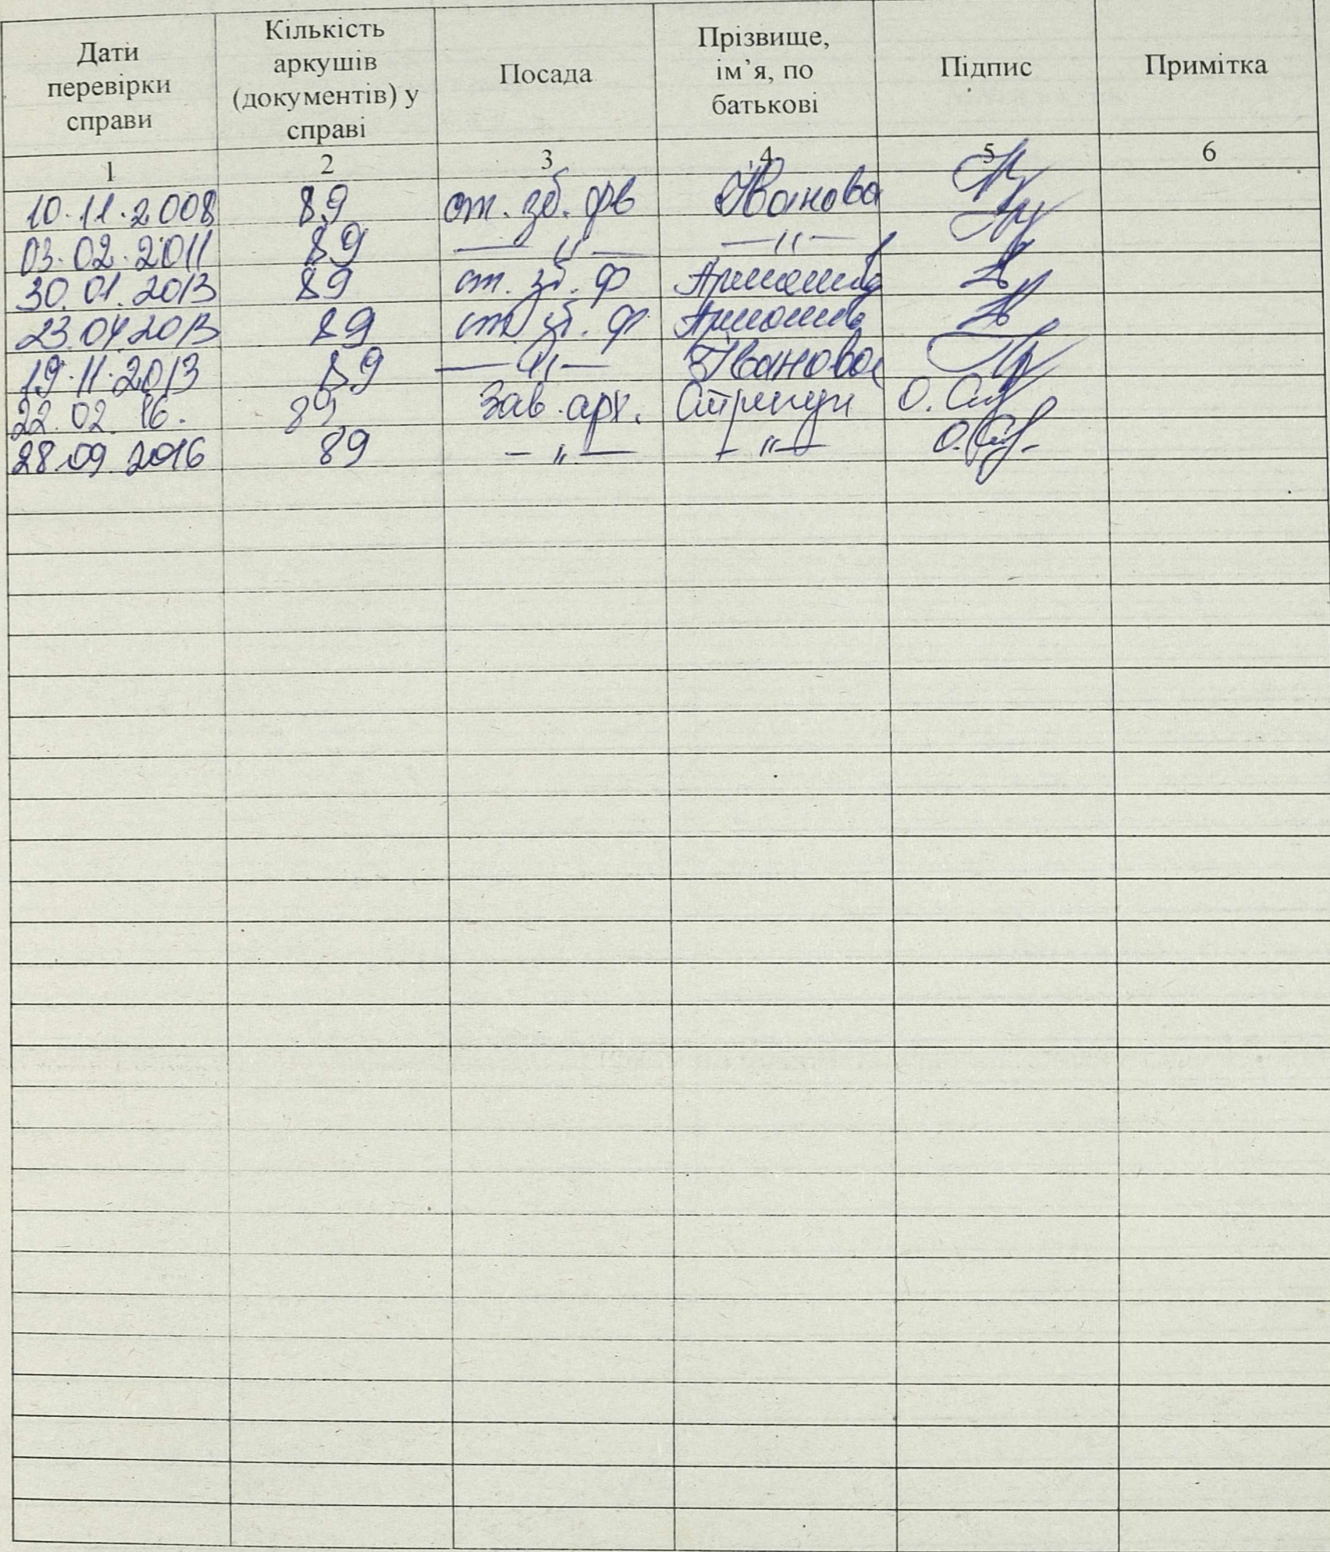 Дати перевірки справи | Кількість аркушів (документів) у справі | Посада | Прізвище, ім’я, по батькові | Підпис | Примітка
1 | 2 | 3 | 4 | 5 | 6
10.11.2008 | 89 | ст. зб. фв | Іванова
03.02.2011 | 89 | — " — | — " —
30.01.2013 | 89 | ст. зб. ф
23.04.2013 | 89 | ст. зб. ф
19.11.2013 | 89 | — " — | Іванова
22.02.16. | 89 | Зав. арх.
28.09.2016 | 89 | — " — | — " —